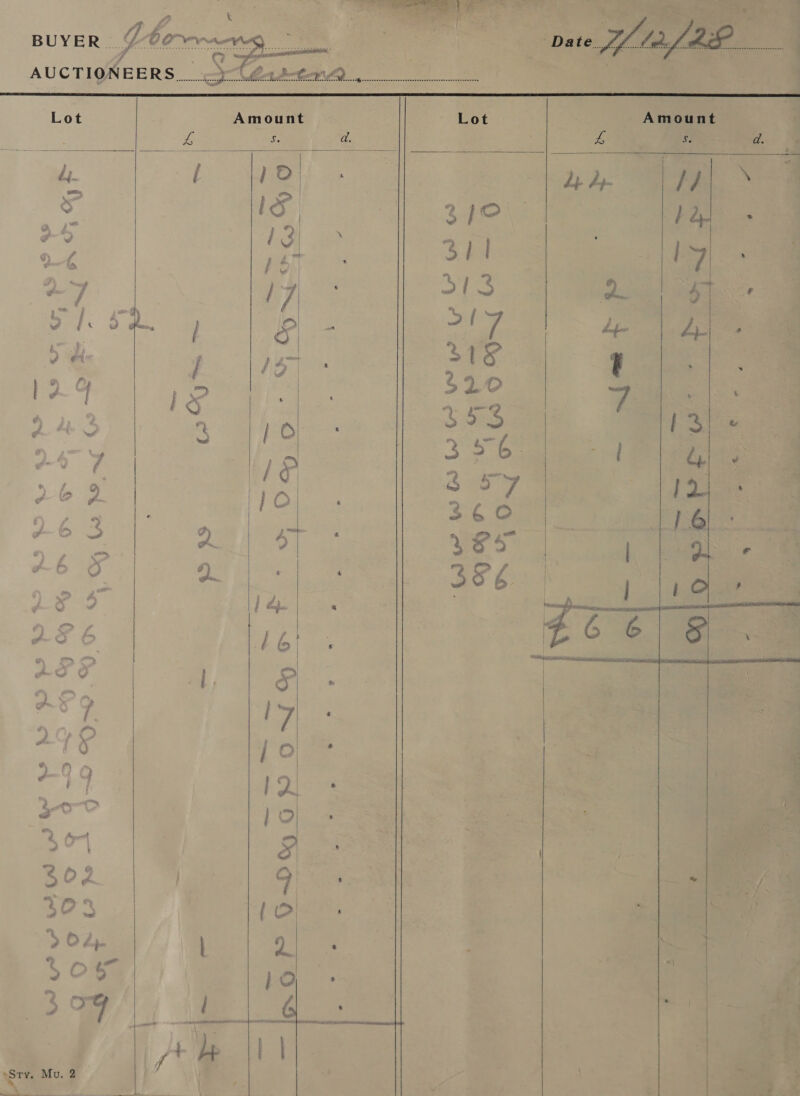 BUYER Gborning
Date 7/12/28
AUCTIONEERS Stevens
Lot Amount
£ s. d.
4 1 10 .
8 18
25 13
26 15 .
27 17 .
51. 52 1 8 -
54 1 15 .
129 18 . .
243 3 10 .
257 18
262 10 .
263 2 5 .
268 2 . .
285 14 .
286 16 .
288 1 8 .
289 17 .
298 10 .
299 12 .
300 10 .
301 8 .
302 9 .
303 10 .
304 1 2 .
305 10 .
309 1 6 .
44 11
Sty. Mu. 2
Lot Amount
£ s. d.
44 11
310 14 .
311 17 .
313 2 5 .
317 4 4 .
318 1 . .
320 7 . .
353 13 .
356 1 4 .
357 12 .
360 16 .
385 1 2 .
386 1 10 .
£66 8 .